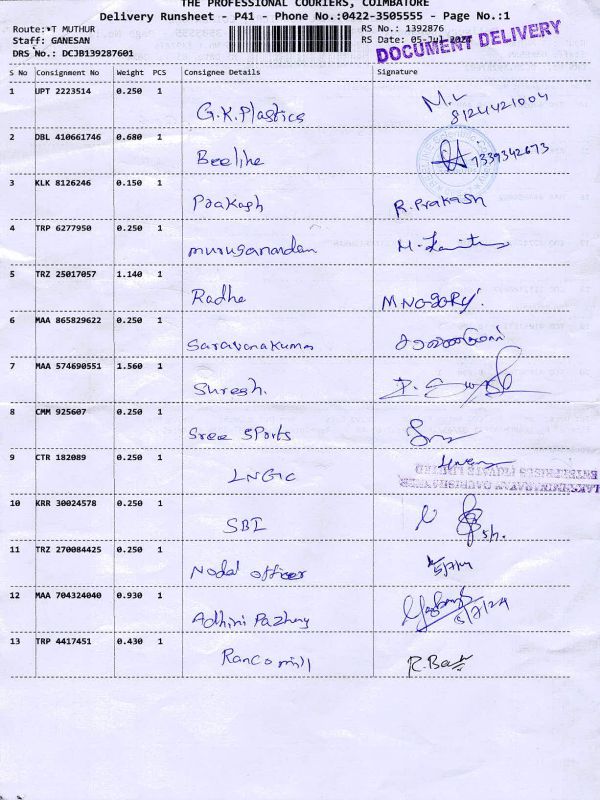 THE PROFESSIONAL COURIERS, COIMBATORE
Delivery Runsheet - P41 - Phone No.:0422-3505555 - Page No.:1
Route:*T MUTHUR
Staff: GANESAN
DRS No.: DCJB139287601
RS No.: 1392876
RS Date: 05-Jul-2024
DOCUMENT DELIVERY
S No Consignment No Weight PCS Consignee Details Signature
1 UPT 2223514 0.250 1
G.K.Plastics M.V
8124421004
2 DBL 410661746 0.680 1
Beeline 7339342673
3 KLK 8126246 0.150 1
Prakash R.Prakash
4 TRP 6277950 0.250 1
murugananden
5 TRZ 25017057 1.140 1
Radha
6 MAA 865829622 0.250 1
Saravanakumar
7 MAA 574690551 1.560 1
Suresh.
8 CMM 925607 0.250 1
Sree Sports
9 CTR 182089 0.250 1
LNGIC
10 KRR 30024578 0.250 1
SBI
11 TRZ 270084425 0.250 1
Nodal officer 5/7/24
12 MAA 704324040 0.930 1
Adhini Pazheny 5/7/24
13 TRP 4417451 0.430 1
Ranco mill